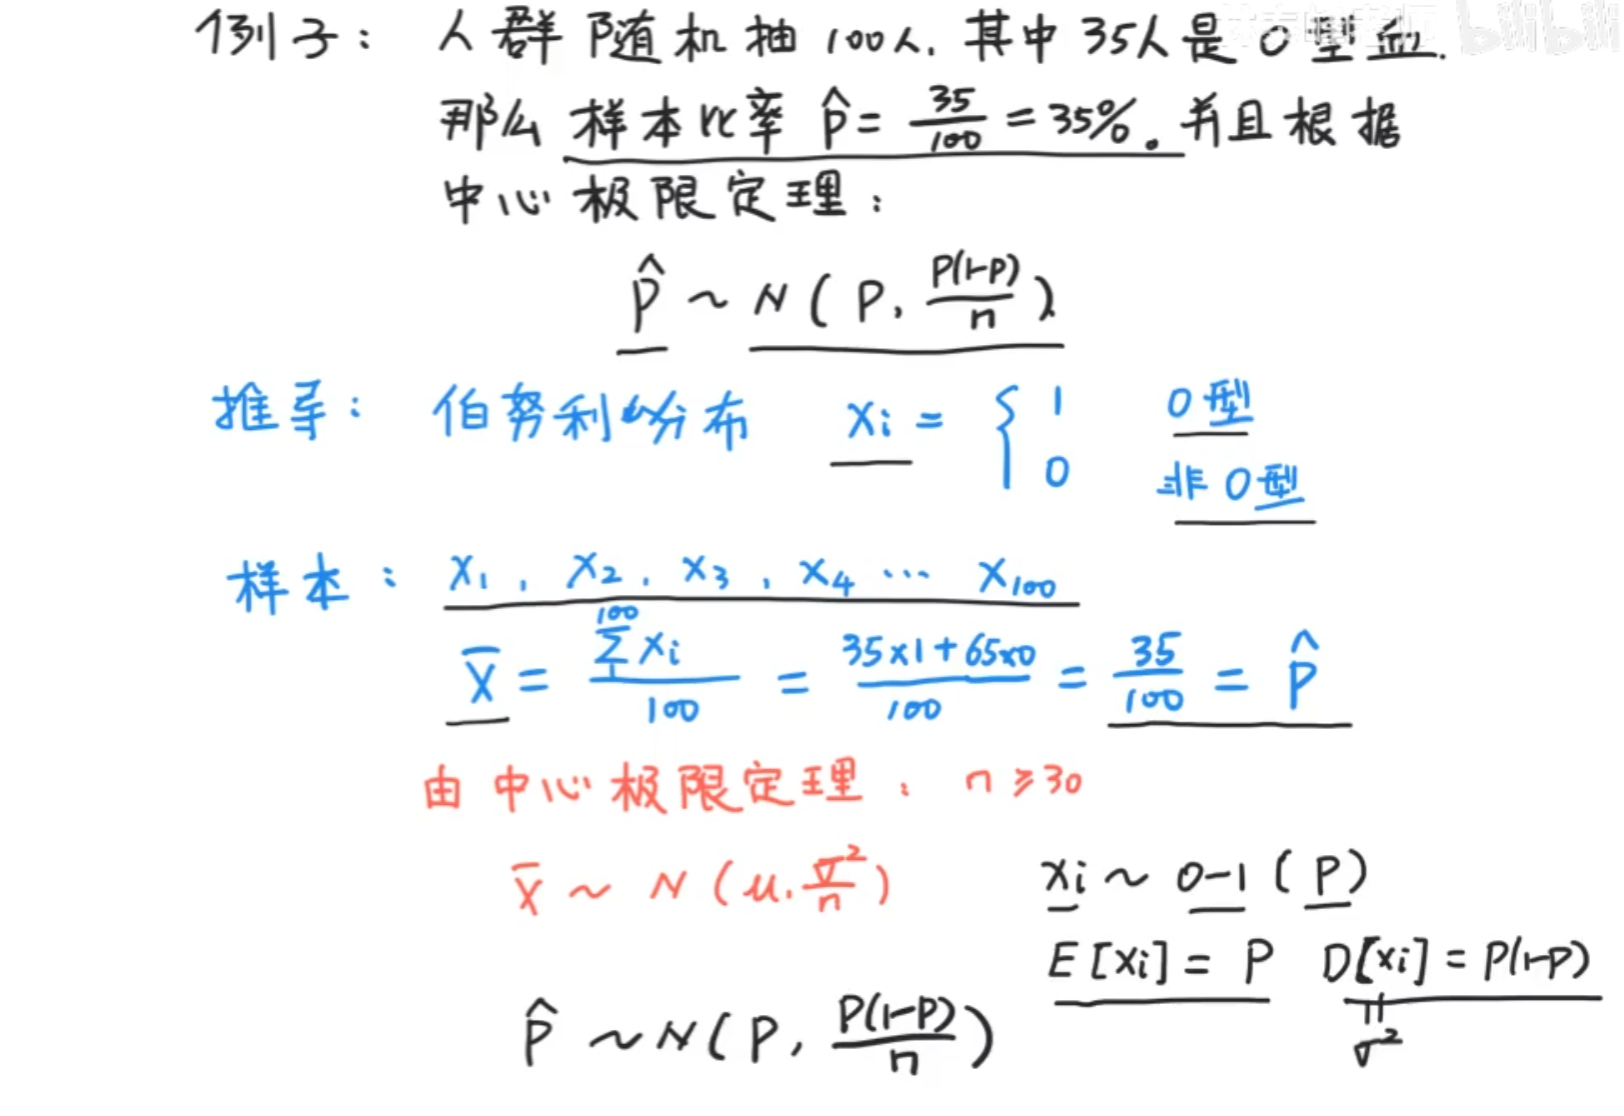 例子： 人群随机抽100人，其中35人是O型血.
bilibili
那么样本比率 p̂ = 35/100 = 35%。并且根据
中心极限定理：
p̂ ~ N ( P, P(1-P)/n )
推导： 伯努利分布 xi = { 1 O型
0 非O型
样本： x₁, x₂, x₃, x₄ … x₁₀₀
X̄ = ∑₁¹⁰⁰ xi / 100 = 35x1+65x0 / 100 = 35/100 = p̂
由中心极限定理： n ≥ 30
X̄ ~ N ( μ, σ²/n ) xi ~ 0-1 ( P )
E [xi] = P D[xi] = P(1-P)
p̂ ~ N ( P, P(1-P)/n ) || σ²